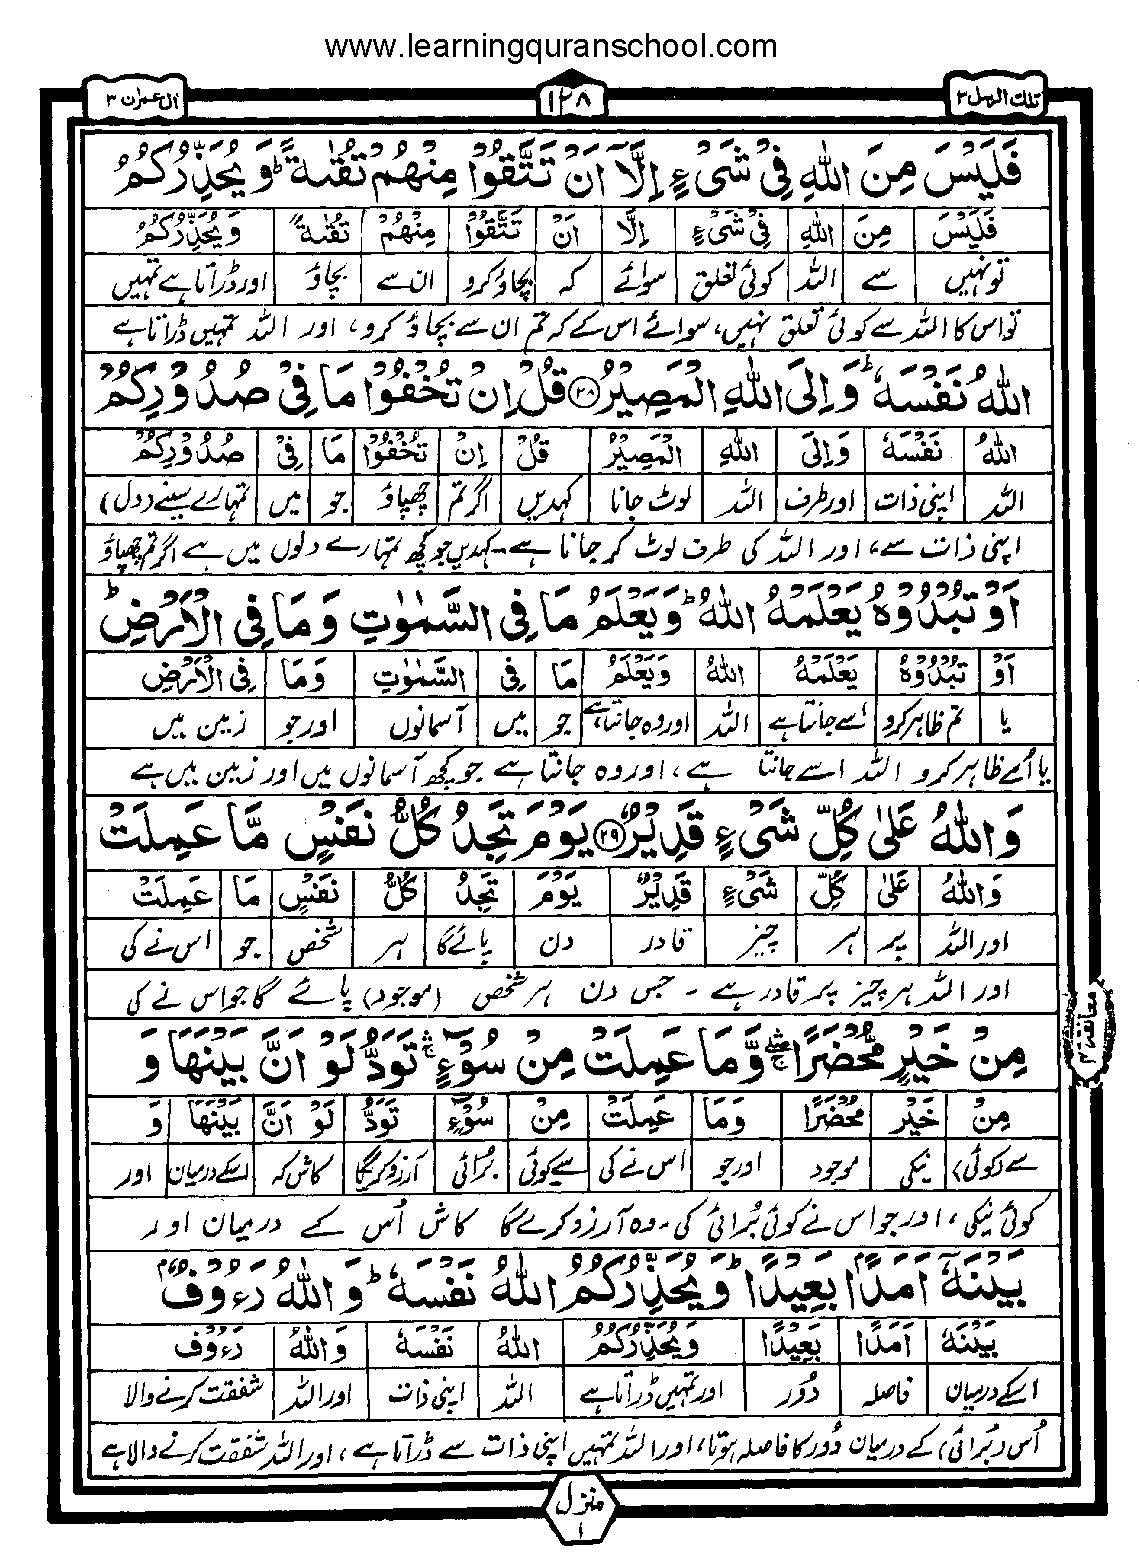 www.learningquranschool.com
تلك الرسل ٣ ١٢٨ ال عمران ٣
فَلَيْسَ مِنَ اللّٰهِ فِيْ شَيْءٍ اِلَّاۤ اَنْ تَتَّقُوْا مِنْهُمْ تُقٰىةً ؕ وَيُحَذِّرُكُمُ
فَلَيْسَ مِنَ اللّٰهِ فِيْ شَيْءٍ اِلَّا اَنْ تَتَّقُوْا مِنْهُمْ تُقٰىةً وَيُحَذِّرُكُمُ
تو نہیں سے اللہ کوئی تعلق سوائے کہ بچاؤ کرو ان سے بچاؤ اور ڈراتا ہے تمہیں
تو اس کا اللہ سے کوئی تعلق نہیں، سوائے اس کے کہ تم ان سے بچاؤ کرو، اور اللہ تمہیں ڈراتا ہے
اللّٰهُ نَفْسَهٗ ؕ وَاِلَى اللّٰهِ الْمَصِيْرُ ۲۸ قُلْ اِنْ تُخْفُوْا مَا فِيْ صُدُوْرِكُمْ
اللّٰهُ نَفْسَهٗ وَاِلَى اللّٰهِ الْمَصِيْرُ قُلْ اِنْ تُخْفُوْا مَا فِيْ صُدُوْرِكُمْ
اللہ اپنی ذات اور طرف اللہ لوٹ جانا کہدیں اگر تم چھپاؤ جو میں تمہارے سینے (دل)
اپنی ذات سے، اور اللہ کی طرف لوٹ کر جانا ہے۔ کہدیں جو کچھ تمہارے دلوں میں ہے اگر تم چھپاؤ
اَوْ تُبْدُوْهُ يَعْلَمْهُ اللّٰهُ ؕ وَيَعْلَمُ مَا فِي السَّمٰوٰتِ وَمَا فِي الْاَرْضِ ؕ
اَوْ تُبْدُوْهُ يَعْلَمْهُ اللّٰهُ وَيَعْلَمُ مَا فِي السَّمٰوٰتِ وَمَا فِي الْاَرْضِ
یا تم ظاہر کرو اسے جانتا ہے اللہ اور وہ جانتا ہے جو میں آسمانوں اور جو زمین میں
یا اُسے ظاہر کرو اللہ اسے جانتا ہے، اور وہ جانتا ہے جو کچھ آسمانوں میں اور زمین میں ہے
وَاللّٰهُ عَلٰى كُلِّ شَيْءٍ قَدِيْرٌ ۲۹ يَوْمَ تَجِدُ كُلُّ نَفْسٍ مَّا عَمِلَتْ
وَاللّٰهُ عَلٰى كُلِّ شَيْءٍ قَدِيْرٌ يَوْمَ تَجِدُ كُلُّ نَفْسٍ مَا عَمِلَتْ
اور اللہ پر ہر چیز قادر دن پائے گا ہر شخص جو اس نے کی
اور اللہ ہر چیز پر قادر ہے ۔ جس دن ہر شخص (موجود) پائے گا جو اس نے کی
مِنْ خَيْرٍ مُّحْضَرًا ۛ وَّمَا عَمِلَتْ مِنْ سُوْٓءٍ ۛ تَوَدُّ لَوْ اَنَّ بَيْنَهَا وَ
معانقه
مِنْ خَيْرٍ مُحْضَرًا وَمَا عَمِلَتْ مِنْ سُوْٓءٍ تَوَدُّ لَوْ اَنَّ بَيْنَهَا وَ
سے (کوئی) نیکی موجود اور جو اس نے کی سے کوئی برائی آرزو کریگا کاش کہ اسکے درمیان اور
کوئی نیکی، اور جو اس نے کوئی بُرائی کی ۔ وہ آرزو کرے گا کاش اُس کے درمیان اور
بَيْنَهٗۤ اَمَدًۢا بَعِيْدًا ؕ وَيُحَذِّرُكُمُ اللّٰهُ نَفْسَهٗ ؕ وَاللّٰهُ رَءُوْفٌۢ
بَيْنَهٗ اَمَدًا بَعِيْدًا وَيُحَذِّرُكُمُ اللّٰهُ نَفْسَهٗ وَاللّٰهُ رَءُوْفٌ
اسکے درمیان فاصلہ دُور اور تمہیں ڈراتا ہے اللہ اپنی ذات اور اللہ شفقت کرنے والا
اُس (برائی) کے درمیان دُور کا فاصلہ ہوتا، اور اللہ تمہیں اپنی ذات سے ڈراتا ہے، اور اللہ شفقت کرنے والا ہے
منزل ١